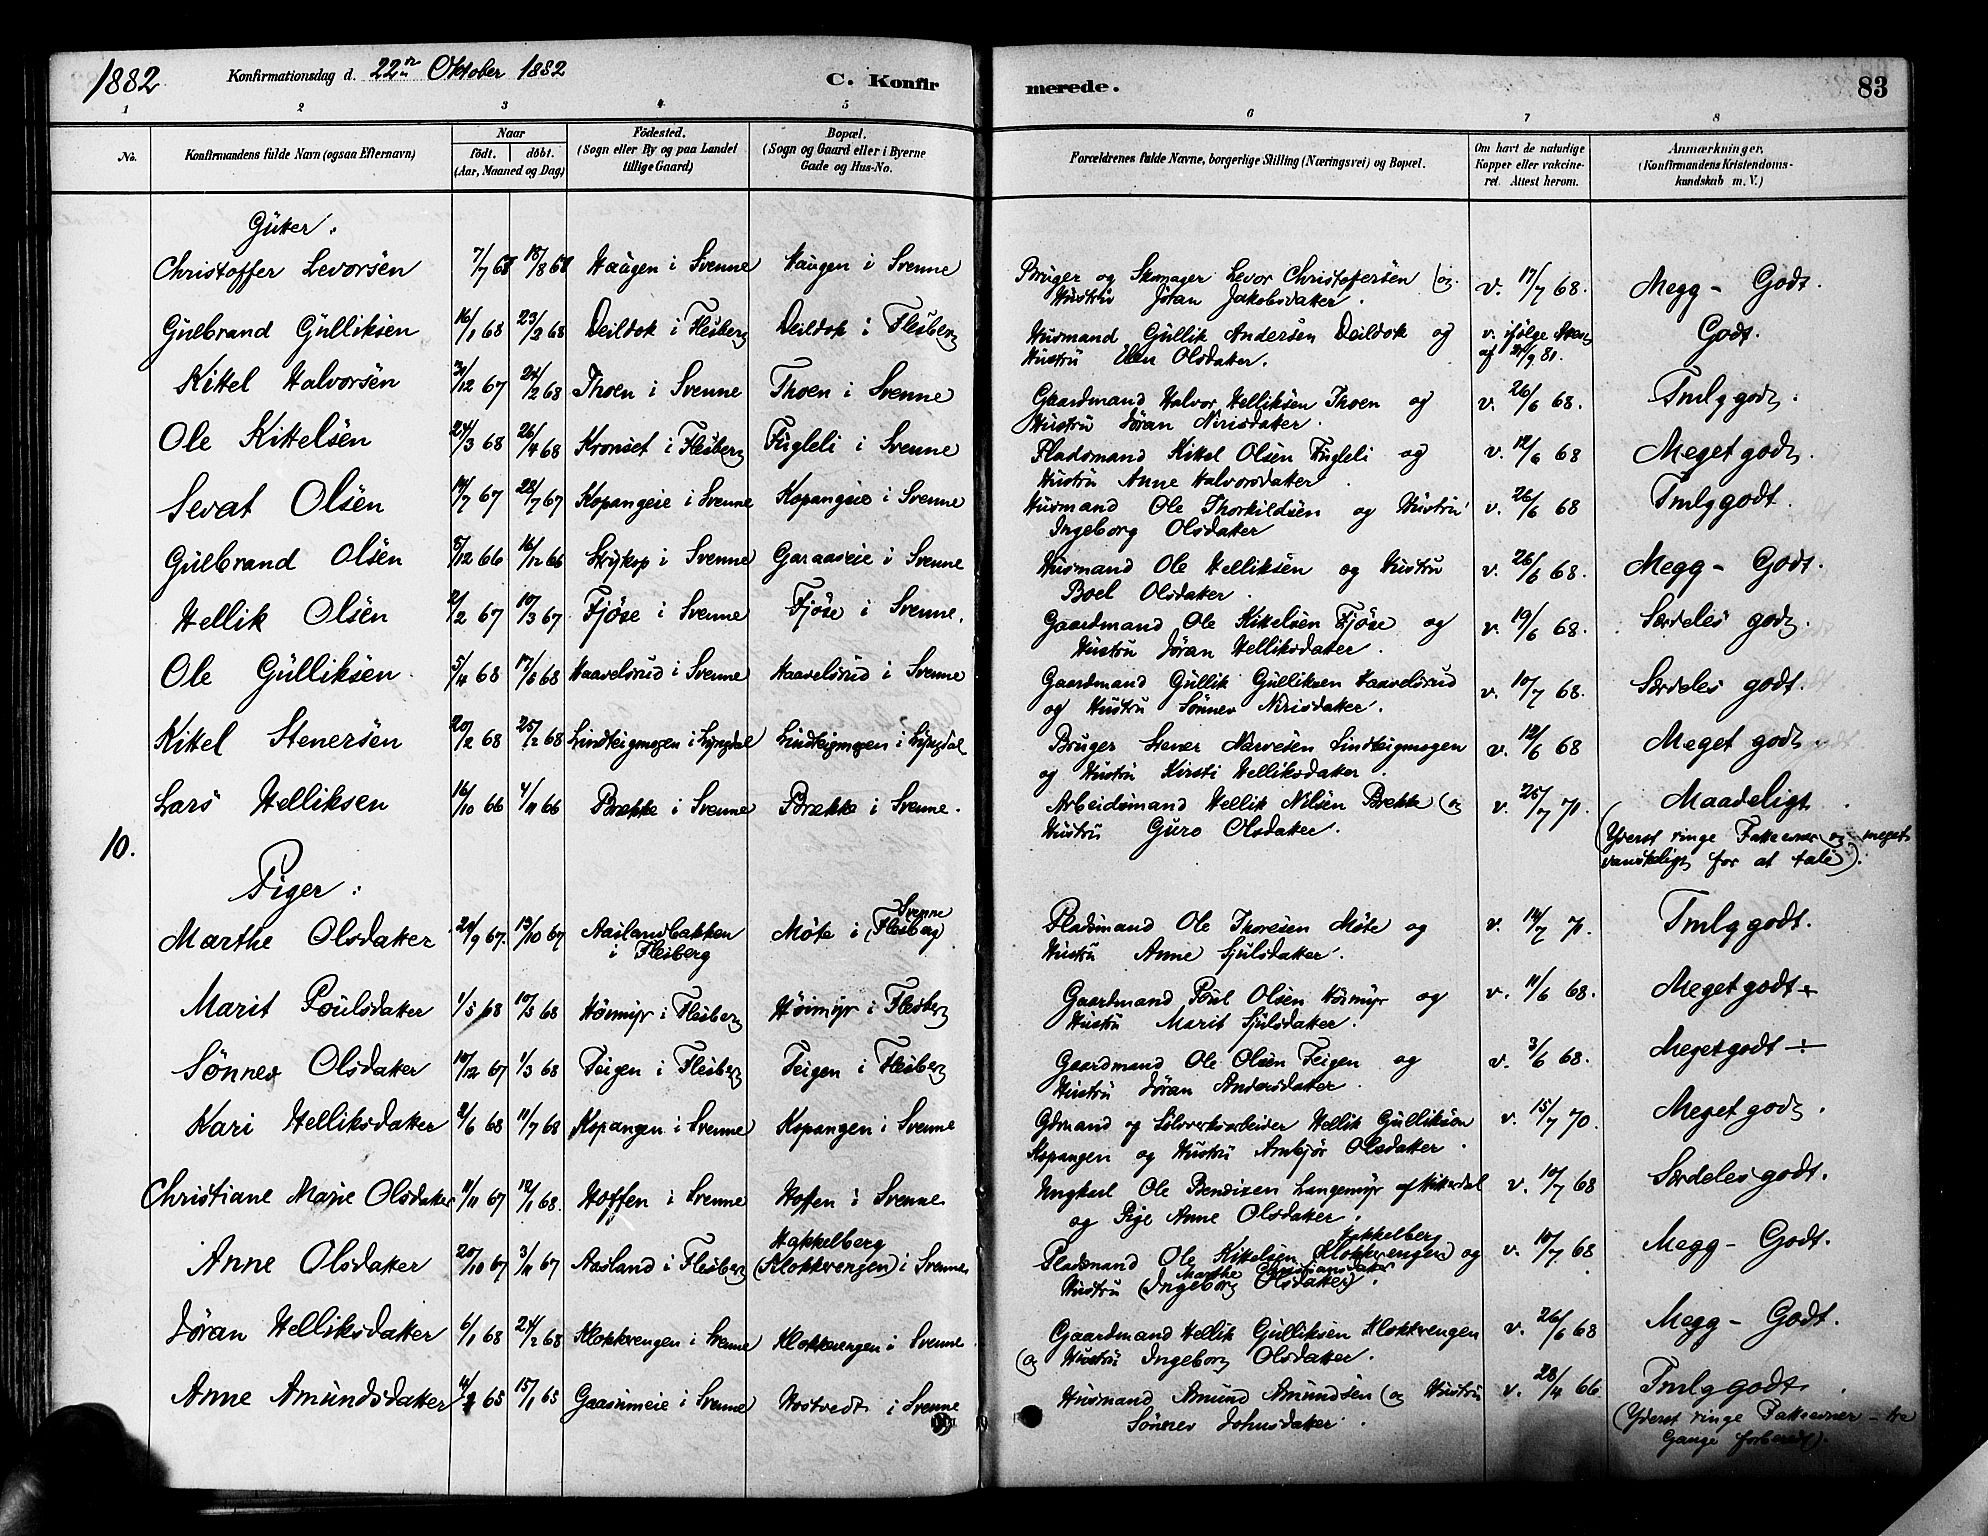 1882 Konfirmationsdag d. 22de Oktober 1882 C. Konfirmerede. 83
1 2 3 4 5 6 7 8
No. Konfirmandens fulde Navn (ogsaa Efternavn) Naar födt. döbt. (Aar, Maaned og Dag) Födested. (Sogn eller By og paa Landet tillige Gaard) Bopæl. (Sogn og Gaard eller i Byerne Gade og Hus-No. Forældrenes fulde Navne, borgerlige Stilling (Næringsvei) og Bopæl. Om havt de naturlige Kopper eller vakcineret. Attest herom. Anmærkninger, (Konfirmandens Kristendomskundskab m. V.)
Gutter:
Christoffer Levorsen 7/7 68 18/8 68 Haugen i Svenne Haugen i Svenne Bruger og Skomager Levor Christofersen og v. 17/7 68. Megg - Godt.
Hustru Jöran Jakobsdatter.
Gulbrand Gulliksen 16/1 68 23/2 68 Deildok i Flesberg Deildok i Flesberg Husmand Gullik Andersen Deildok og v. ifølge Godt.
Hustru Olsdatter. af 9 81.
Kittel Halvorsen 31/12 67 24/2 68 Thoen i Svenne Thoen i Svenne Gaardmand Halvor Helliksen Thoen og v. 26/6 68. Tmlg godt.
Hustru Jöran Nirisdatter.
Ole Kittelsen 24/3 68 26/4 68 Kronset i Flesberg Fugleli i Svenne Pladsmand Kittel Olsen Fugleli og v. 12/6 68 Meget godt.
Hustru Anne Halvorsdatter.
Sevat Olsen 14/7 67 28/7 67 Kopangeie i Svenne Kopangeie i Svenne Husmand Ole Thorkildsen og Hustru v. 26/6 68 Tmlg godt.
Ingeborg Olsdatter
Gulbrand Olsen 5/12 66 16/12 66 i Svenne Garaaseie i Svenne Husmand Ole Helliksen og Hustru v. 26/6 68. Megg - Godt.
Boel Olsdatter.
Hellik Olsen 2/2 67 10/3 67 Fjöse i Svenne Fjöse i Svenne. Gaardmand Ole Kittelsen Fjöse og v. 19/6 68. Særdeles godt.
Hustru Jöran Helliksdatter.
Ole Gulliksen. 5/4 68 17/5 68 Haavelsrud i Svenne Haavelsrud i Svenne Gaardmand Gullik Gulliksen Haavelsrud v. 10/7 68. Særdeles godt.
og Hustru Sönnev Nirisdatter.
Kittel Stenersen 20/2 68 25/2 68 Lindteigmogen i Lyngdal Lindteigmogen i Lyngdal Bruger Stener Narvesen Lindteigmogen v. 12/6 68 Meget godt
og Hustru Kirsti Helliksdatter.
Lars Helliksen 16/10 66 4/11 66 Brække i Svenne Brække i Svenne. Arbeidsmand Hellik Nilsen Brække og v. 25/7 70. Maadeligt.
10. Hustru Guro Olsdatter. (Yderst ringe Fatteevner og meget
vanskeligt for at tale).
Piger:
Marthe Olsdatter 29/9 67. 13/10 67 Aaslandbakken Möte i (Flesberg) Svenne Pladsmand Ole Thoresen Möte og v. 14/7 70. Tmlg godt.
i Flesberg Hustru Anne Sjulsdatter.
Marit Poulsdatter 1/5 68 10/5 68 Höimyr i Flesberg Höimyr i Flesberg Gaardmand Poul Olsen Höimyr og v. 11/6 68. Meget godt +
Hustru Marit Sjulsdatter.
Sönnev Olsdatter 10/12 67 1/3 68 Teigen i Flesberg Teigen i Flesberg Gaardmand Ole Olsen Teigen og v. 3/6 68. Meget godt ÷
Hustru Jöran Andersdatter.
Kari Helliksdatter 2/6 68 11/7 68 Kopangen i Svenne Kopangen i Svenne Gdmand og Sölvverksarbeider Hellik Gulliksen v. 15/7 70. Meget godt.
Kopangen og Hustru Ambjör Olsdatter.
Christiane Marie Olsdatter 11/11 67 12/1 68. Hoffen i Svenne Hoffen i Svenne Ungkarl Ole Bendixen Langemyr af Hitterdal v. 10/7 68 Særdeles godt.
og Pige Anne Olsdatter.
Anne Olsdatter 20/10 67 3/11 67 Aasland i Flesberg Hakkelberg (Klokkrengen) i Svenne Pladsmand Ole Kittelsen Hakkelberg (Klokkrengen) og v. 10/7 68 Megg - Godt.
Hustru Marthe Christiansdatter (Ingeborg Olsdatter).
Jöran Helliksdatter 6/1 68 24/2 68 Klokkrengen i Svenne Klokkrengen i Svenne Gaardmand Hellik Gulliksen Klokkrengen v. 26/6 68 Megg - Godt.
og Hustru Ingeborg Olsdatter.
Anne Amundsdatter 65 15/1 65 i Svenne Hostvedt i Svenne Husmand Amund Amundsen og Hustru v. 28/4 66 Tmlg godt.
Sönnev Johnsdatter. (Yderst ringe Fatteevner - tre
Gange forberedt).